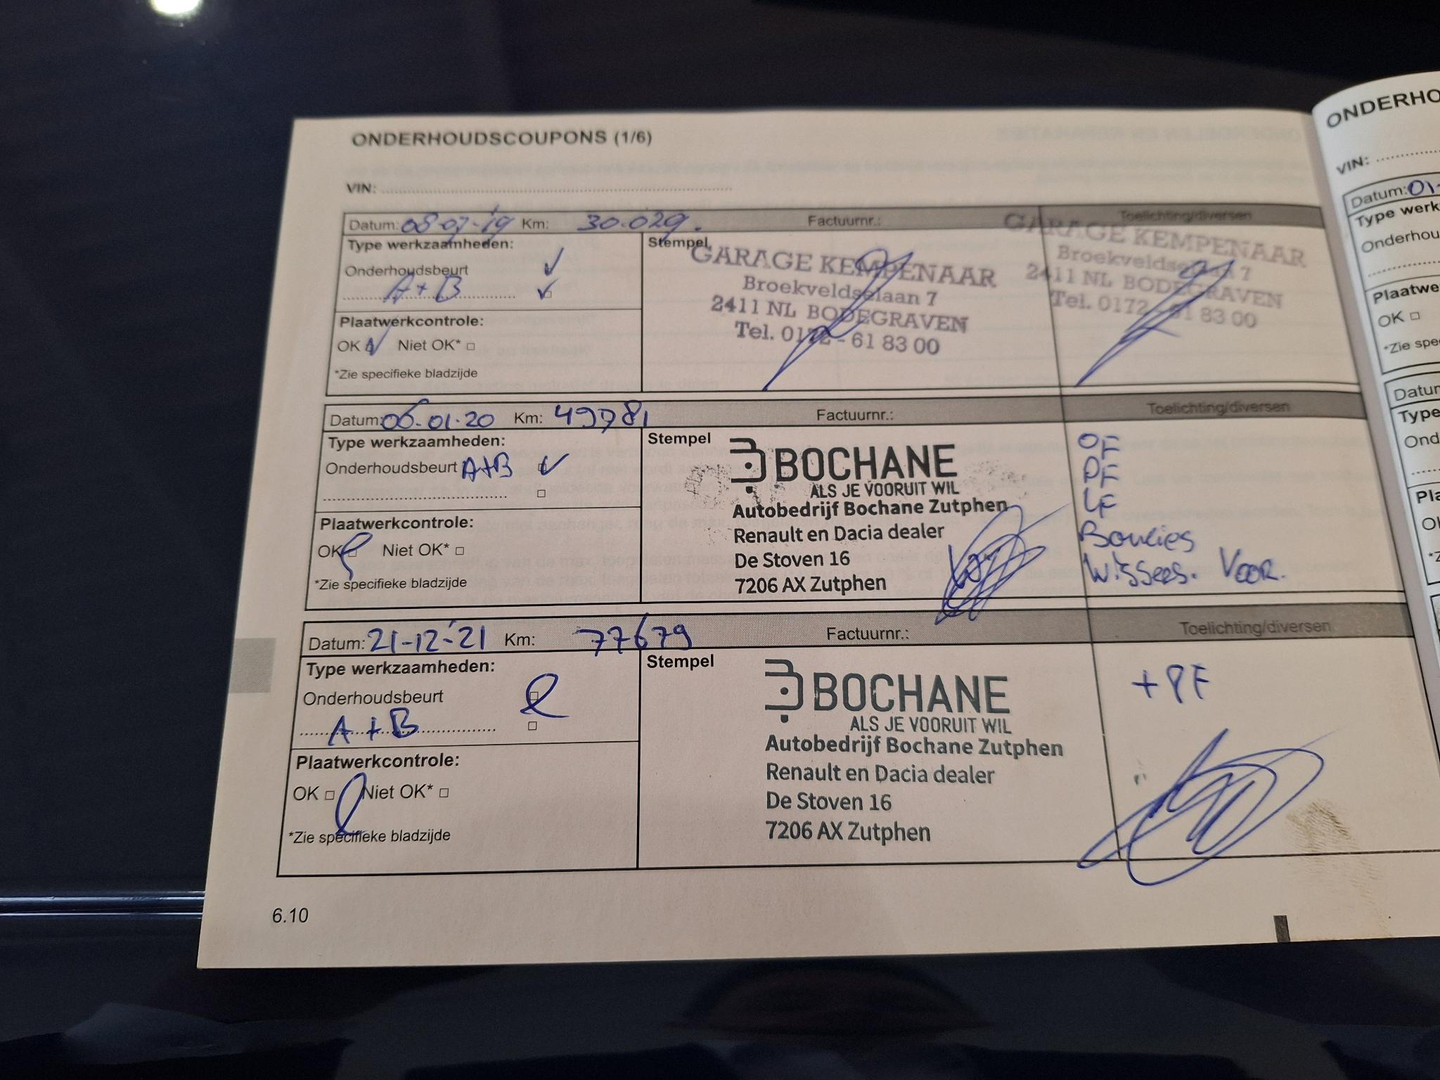 ONDERHOUDSCOUPONS (1/6)
VIN:
Datum: 08-07-'19 Km: 30.029. Factuurnr.: Toelichting/diversen
Type werkzaamheden:
Onderhoudsbeurt
A+B
Plaatwerkcontrole:
OK Niet OK*
*Zie specifieke bladzijde
Stempel
GARAGE KEMPENAAR
Broekveldselaan 7
2411 NL BODEGRAVEN
Tel. 0172 - 61 83 00
GARAGE KEMPENAAR
Broekveldselaan 7
2411 NL BODEGRAVEN
Tel. 0172 - 61 83 00
Datum: 06-01-20 Km: 49781 Factuurnr.: Toelichting/diversen
Type werkzaamheden:
Onderhoudsbeurt A+B
Plaatwerkcontrole:
OK Niet OK*
*Zie specifieke bladzijde
Stempel
BOCHANE
ALS JE VOORUIT WIL
Autobedrijf Bochane Zutphen
Renault en Dacia dealer
De Stoven 16
7206 AX Zutphen
OF
PF
LF
Bougies
Wissers. Voor.
Datum: 21-12-'21 Km: 77679 Factuurnr.: Toelichting/diversen
Type werkzaamheden:
Onderhoudsbeurt
A + B
Plaatwerkcontrole:
OK Niet OK*
*Zie specifieke bladzijde
Stempel
BOCHANE
ALS JE VOORUIT WIL
Autobedrijf Bochane Zutphen
Renault en Dacia dealer
De Stoven 16
7206 AX Zutphen
+PF
6.10
VIN:
Datum: 01-
OK